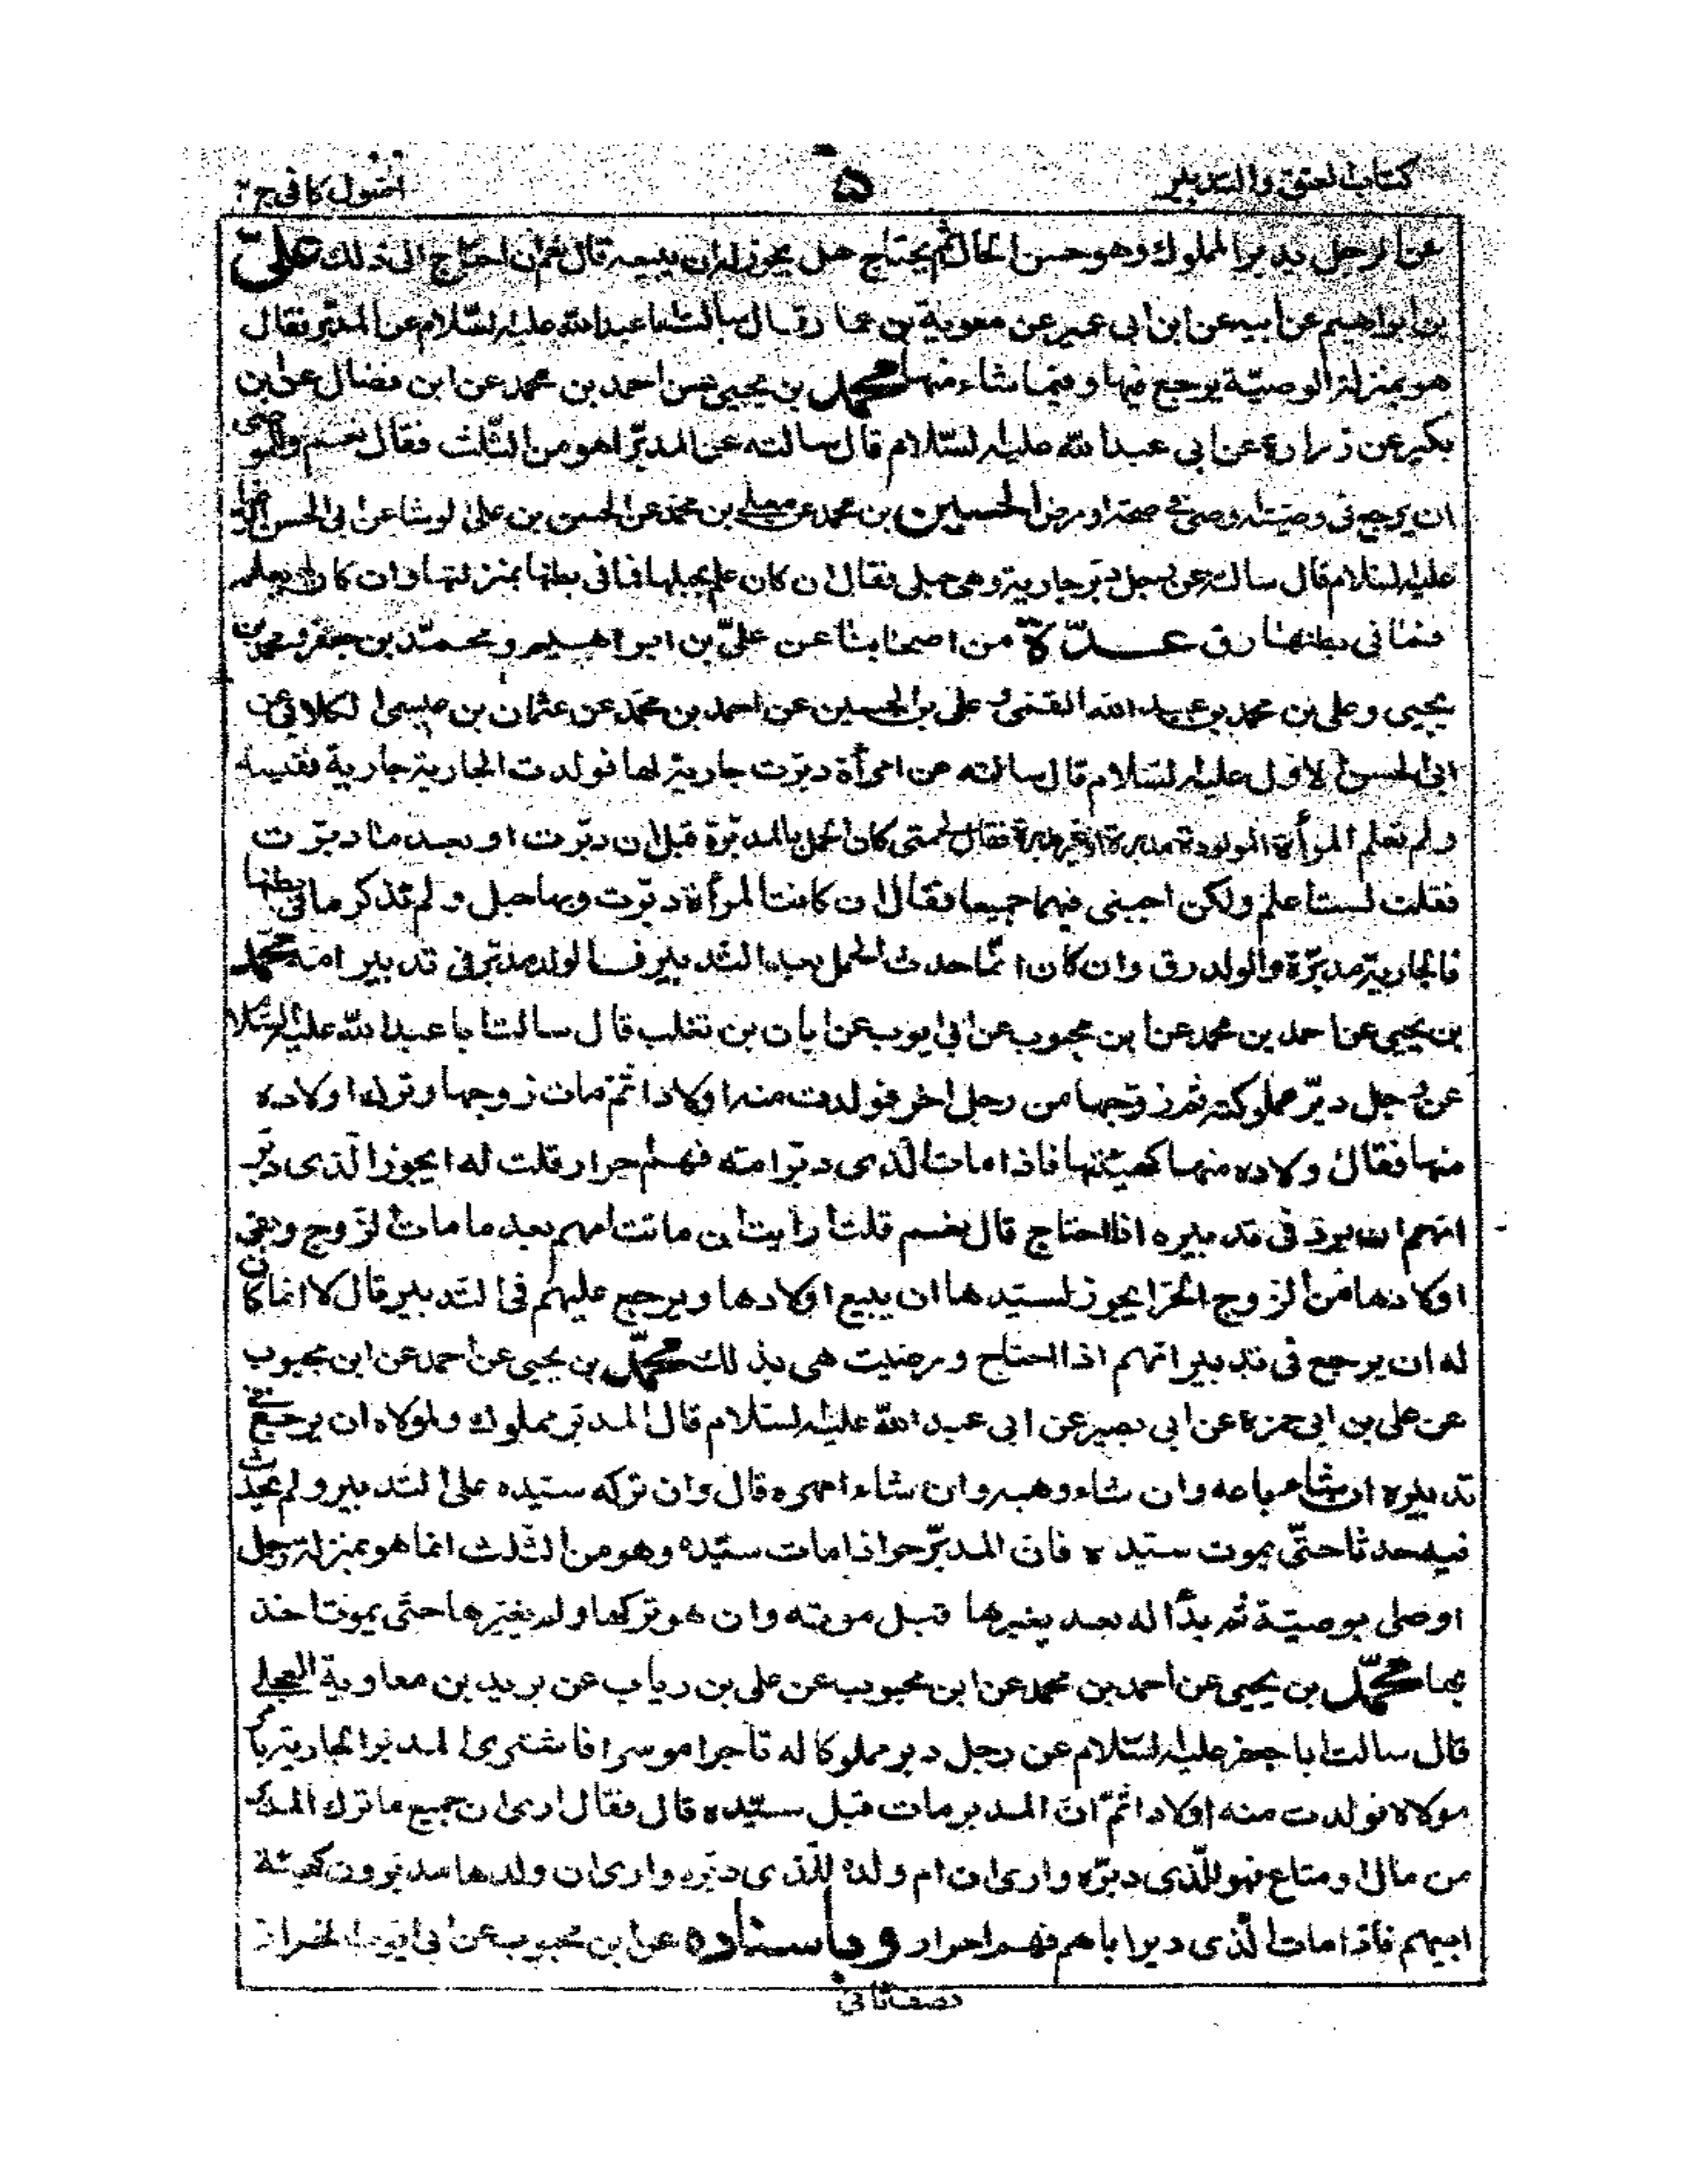 كتاب العتق والتدبير
۵
اصول كافى ج ۲
عن الرجل يدبر المملوك وهو حسن الحال ثم يحتاج هل يجوز له ان يبيعه قال نعم ان احتاج الى ذلك علىّ
بن ابراهيم عن ابيه عن ابن ابى عمير عن معوية بن عمار قال سالت ابا عبد الله عليه السّلام عن المدبّر فقال
هو بمنزلة الوصيّة يرجع فيها وفيما شاء منها محمّد بن يحيى عن احمد بن محمد عن ابن فضال عن ابن
بكير عن زرارة عن ابى عبد الله عليه السّلام قال سالته عن المدبّر اهو من الثّلث فقال نعم وللموصى
ان يرجع فى وصيّته اوصى فى صحة او مرض الحسين بن محمد عن معلى بن محمد عن الحسن بن على الوشا عن ابى الحسن الرضا
عليه السلام قال سالته عن رجل دبّر جارية وهى حبلى فقال ان كان علم بحبلها فما فى بطنها بمنزلتها وان كان لم يعلم
فما فى بطنها رق عدّة من اصحابنا عن علىّ بن ابراهيم ومحمّد بن جعفر ومحمد بن
يحيى وعلى بن محمد بن عبد الله القمى وعلى بن الحسين عن احمد بن محمّد عن عثمان بن عيسى الكلابى عن
ابى الحسن الاول عليه السّلام قال سالته عن امرأة دبّرت جارية لها فولدت الجارية جارية نفيسة
ولم تعلم المرأة المولودة مدبرة او غير مدبرة فقال لى متى كان الحمل بالمدبّرة قبل ان دبّرت او بعد ما دبّرت
فقلت لست اعلم ولكن اجبنى فيهما جميعا فقال ان كانت المرأة دبّرت وبها حبل ولم تذكر ما فى بطنها
فالجارية مدبّرة والولد رق وان كان انّما حدث الحمل بعد التّدبير فالولد مدبّر فى تدبير امّه محمّد
بن يحيى عن احمد بن محمد عن ابن محبوب عن ابى ايوب عن ابان بن تغلب قال سالت ابا عبد الله عليه السّلام
عن رجل دبّر مملوكته ثم زوّجها من رجل اخر فولدت منه اولادا ثمّ مات زوجها وترك اولاده
منها فقال اولاده منها كهيئتها فاذا مات الّذى دبّر امّه فهم احرار قلت له ايجوز الّذى دبّر
امّهم ان يردّ فى تدبيره اذا احتاج قال نعم قلت ارايت ان ماتت امهم بعد ما مات الزّوج وبقى
اولادها من الزوج الحرّ ايجوز لسيّدها ان يبيع اولادها ويرجع عليهم فى التّدبير قال لا انّما كان
له ان يرجع فى تدبير امّهم اذا احتاج ورضيت هى بذلك محمّد بن يحيى عن احمد عن ابن محبوب
عن على بن ابى حمزة عن ابى بصير عن ابى عبد الله عليه السّلام قال المدبّر مملوك ولمولاه ان يرجع فى
تدبيره ان شاء باعه وان شاء وهبه وان شاء امهره قال وان تركه سيّده على التّدبير ولم يحدث
فيه حدثا حتّى يموت سيّده فانّ المدبّر حر اذا مات سيّده وهو من الثّلث انما هو بمنزلة رجل
اوصى بوصيّة ثم بدا له بعد يغيرها قبل موته وان هو تركها ولم يغيّرها حتّى يموت اخذ
بها محمّد بن يحيى عن احمد بن محمد عن ابن محبوب عن على بن رياب عن بريد بن معاوية العجلى
قال سالت ابا جعفر عليه السّلام عن رجل دبر مملوكا له تاجرا موسرا فاشترى المدبّر الجارية بامر
مولاه فولدت منه اولادا ثمّ انّ المدبر مات قبل سيّده قال فقال ارى ان جميع ما ترك المدبر
من مال او متاع فهو للّذى دبّره وارى ان ام ولده للّذى دبّره وارى ان ولدها مدبّرون كهيئة
ابيهم فاذا مات الّذى دبر اباهم فهم احرار وباسناده عن ابن محبوب عن ابى ايوب الخزاز
نصف ثانى